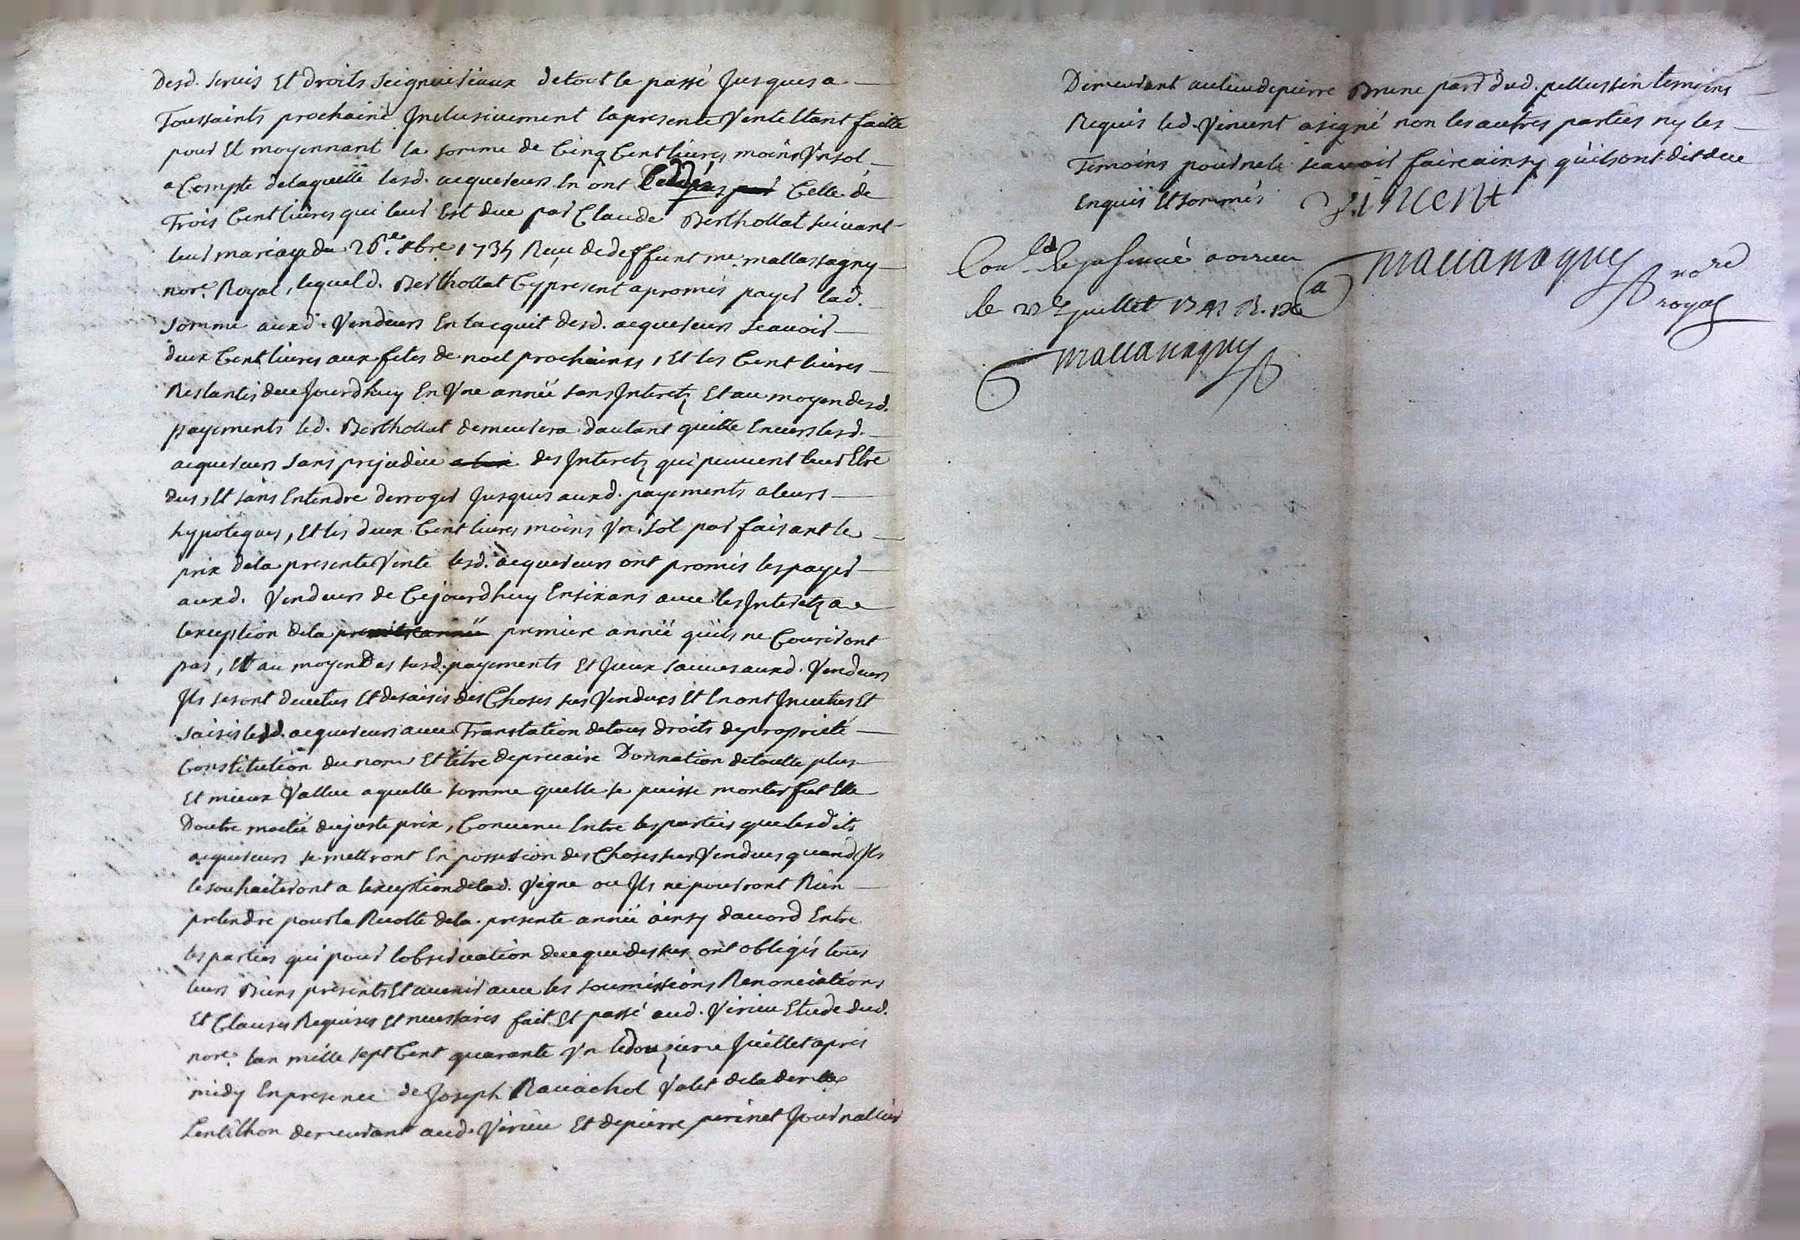 desd. servis Et droits seigneuriaux de tout le passé Jusques a
Toussaints prochaine Inclusivement la presente Vente Etant faitte
pour Et moyennant la somme de Cinq Cent livres moins Un sol
a Compte de laquelle lesd. acquereurs En ont Ceddés Celle de
Trois Cent livres qui leur Est due par Claude Berthollat suivant
leur mariage du 26e 1734 Reçu de deffunt me. mallassagny
nore. Royal, lequel d. Berthollat Cy present a promis payer lad.
somme auxd. Vendeurs En lacquit desd. acquereurs scavoir
deux Cent livres aux fetes de noel prochaines, Et les Cent livres
Restantes de ce Jourdhuy En Une année sans Interets Et au moyen desd.
payements led. Berthollat demeurera dautant quitte Envers lesd.
acquereurs sans prejudice des Interets qui peuvent leur Etre
dus, Et sans Entendre derroger Jusques auxd. payements a leurs
hypoteques, Et les deux Cent livres moins Un sol parfaisant le
prix de la presente Vente lesd. acquereurs ont promis les payer
auxd. Vendeurs de Cejourdhuy En six ans avec les Interets a
lexception de la premiere année premiere année quils ne Courront
pas, Et au moyen des susd. payements Et Iceux sauves auxd. Vendeurs
Ils seront devetus Et desaisis des Choses sus Vendues Et En ont Invetus Et
saisis lesd. acquereurs avec Translation de tous droits de proprieté
Constitution du nom Et titre de precaire Donnation de toutte plus
Et mieux Vallue a quelle somme quelle se puisse monter fut Elle
Doutre moetié du juste prix, Convenu Entre les parties que lesdits
acquereurs se mettront En possession des Choses sus Vendues quand Ils
le souhaiteront a lexception de lad. Vigne ou Ils ne pourront Rien
pretendre pour la Recolte de la presente année ainsy daccord Entre
les parties qui pour lobservation de ce que dessus ont obligés tous
leurs Biens presents Et avenir avec les soumissions Renonciations
Et Clauses Requises Et necessaires fait Et passé aud. Virieu Etude dud.
nore. lan mille sept Cent quarante Un le douzieme Juillet apres
midy En presence de Joseph Ravachol Valet de la demlle
Lentilhon demeurant aud. Virieu Et de pierre perinet Journallier
Demeurant au lieu de pierre Brune parr. dud. pellussin temoins
Requis led. Vincent a signé non les autres parties ny les
Temoins pour ne le scavoir faire ainsy quils ont dit de ce
Enquis Et sommés Vincent
a virieu mallassagny nore
le 22 juillet 1741 R. royal
mallassagny